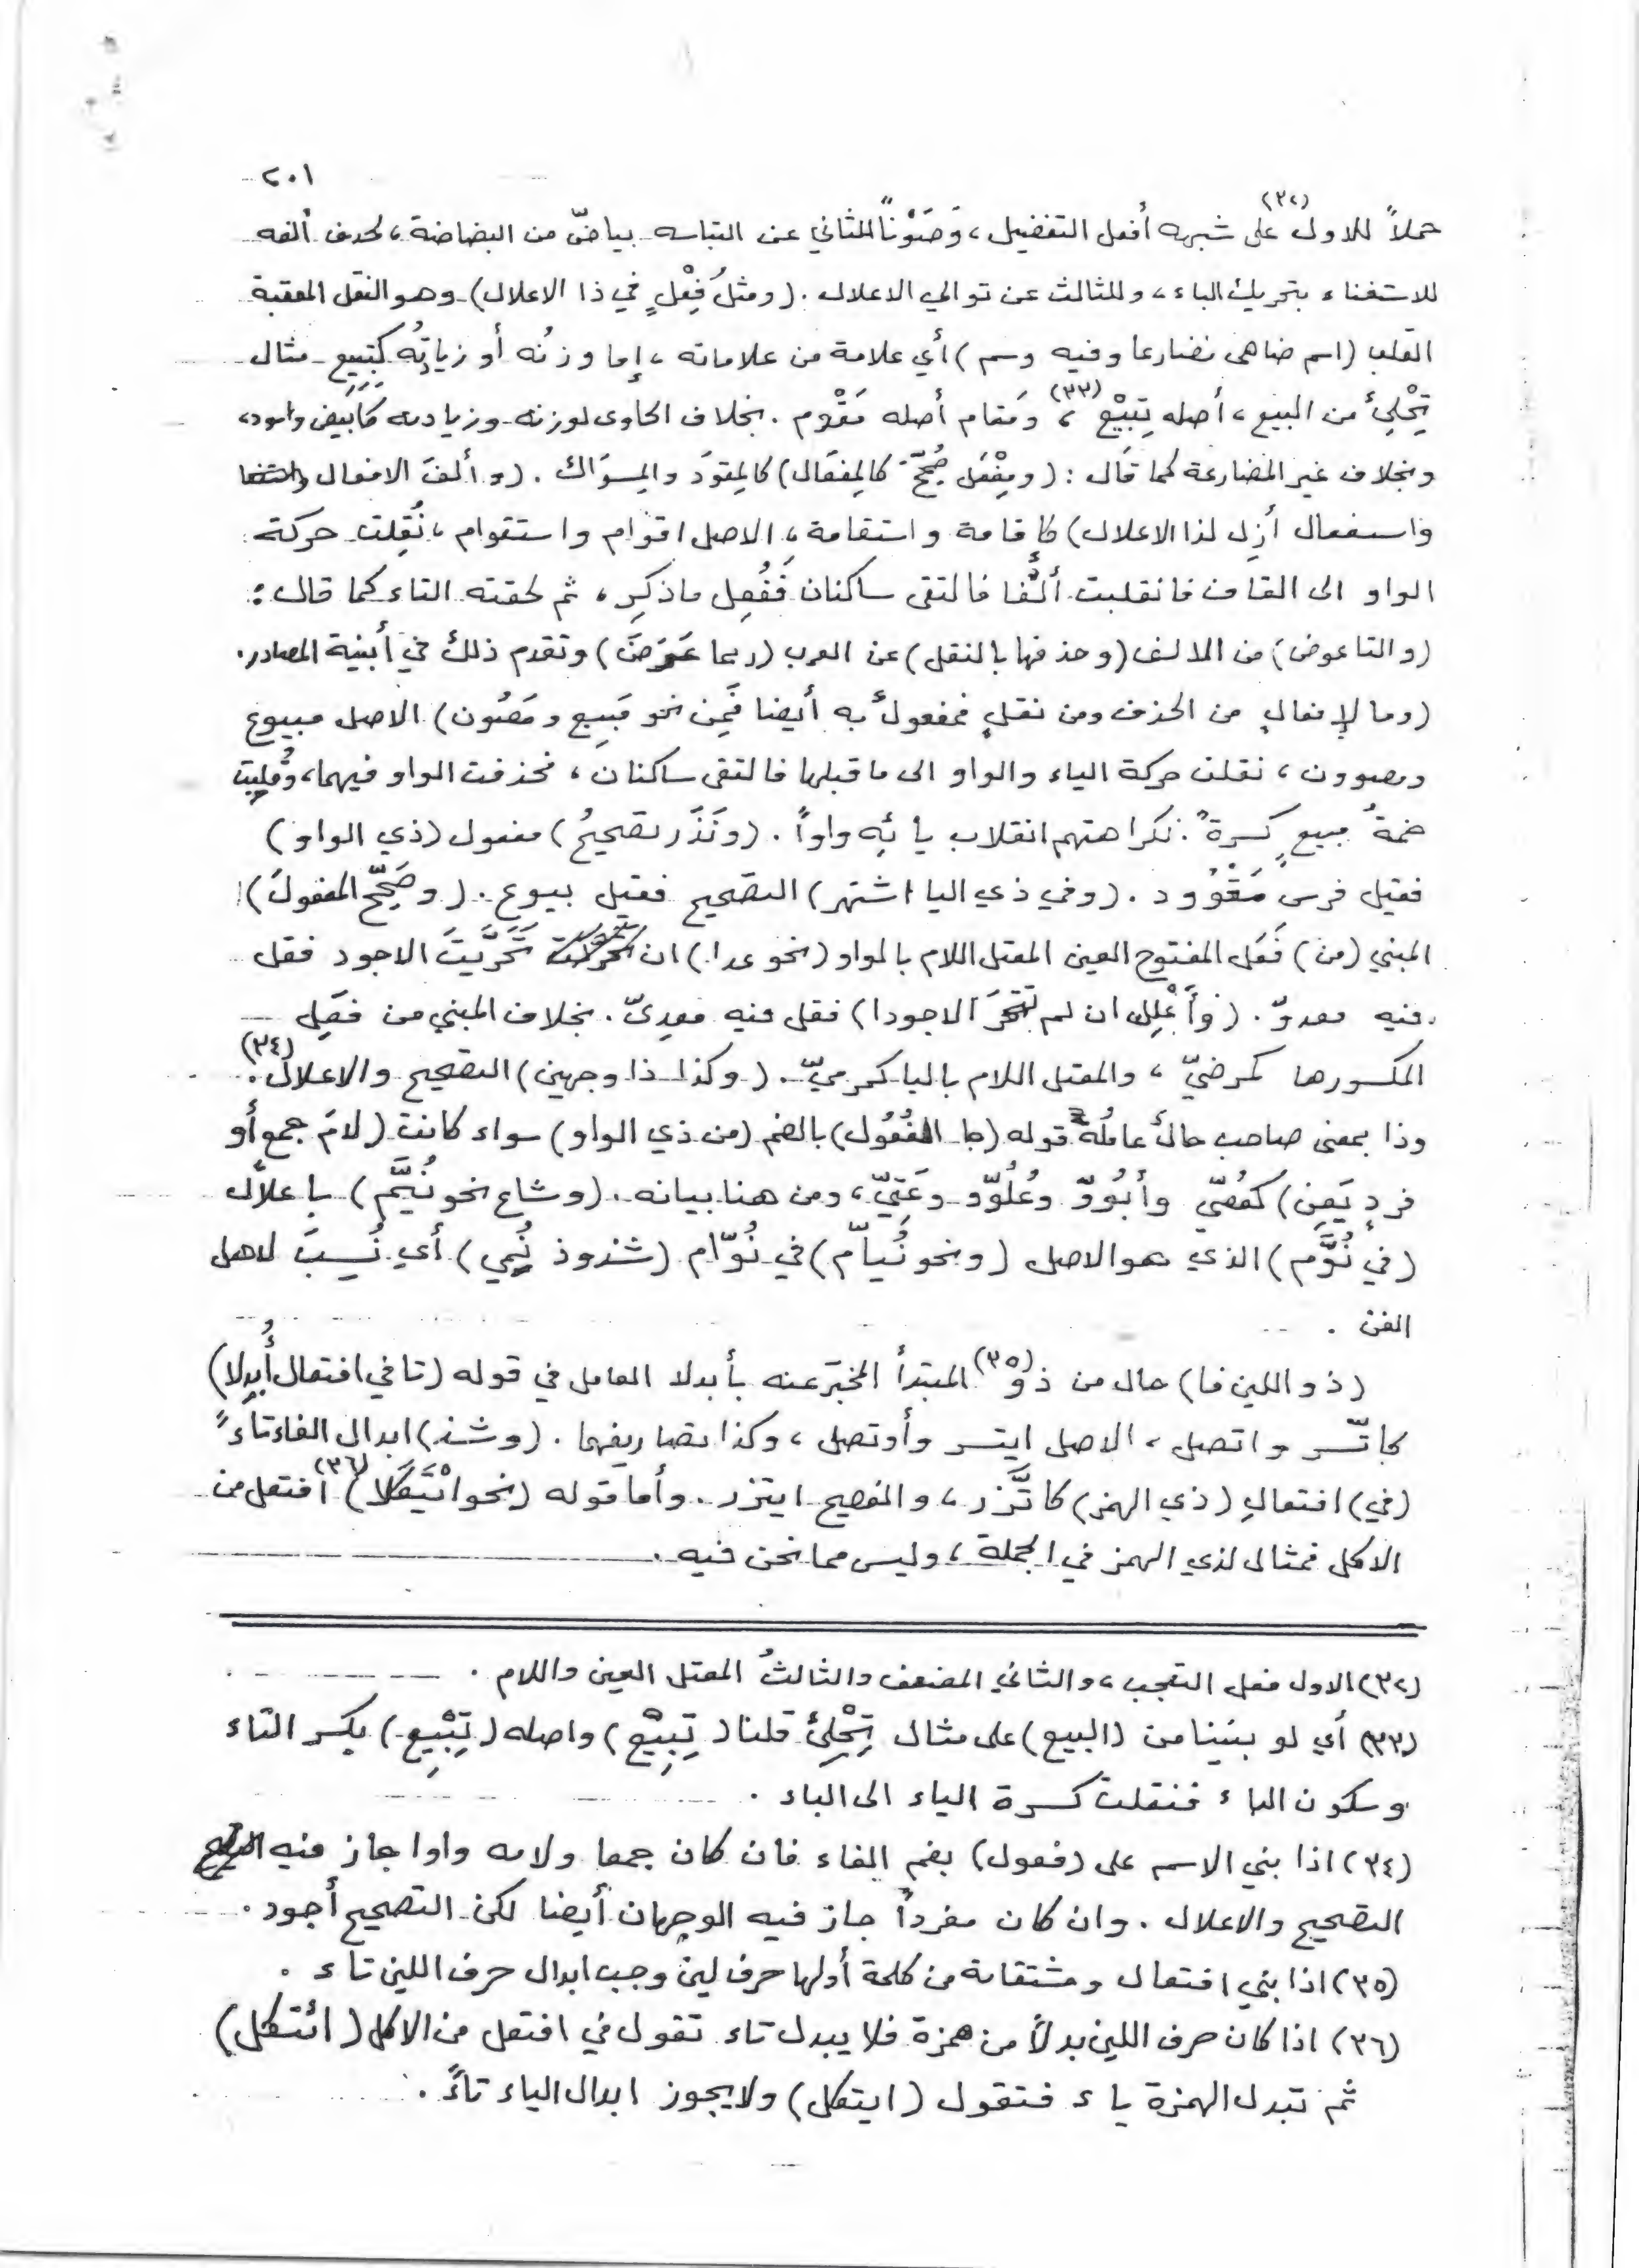 ٢٠١
حملاً للاول (٣٢) على شبهه أفعل التفضيل ، وَصَوْناً للثاني عن التباسه بباضّ من البضاضة ، لحذف ألفه
للاستغناء بتحريك الباء ، وللثالث عن توالي الاعلال . (ومثلُ فِعْلٍ في ذا الاعلال) وهو النقل المعقبة
القلب (اسم ضاهى مضارعا وفيه وسم) أي علامة من علاماته ، إما وزنُه أو زيادتُه كَتِبِيع مثال
تِحْلِئُ من البيع ، أصله تِبْيِع (٣٣) ، ومَقام أصله مَقْوَم . بخلاف الحاوى لوزنه وزيادته كأَبيض واسود ،
وبخلاف غير المضارعة كما قال : (ومِفْعَل صُحِّحَ كالمِفعَال) كالمِقوَد والمِسوَاك . (وألفَ الافعال
واستفعال أزِل لذا الاعلال) كإقامة واستقامة ، الاصل اقوام واستقوام ، نُقِلت حركة
الواو الى القاف فانقلبت ألفًا فالتقى ساكنان فَفُعِل ماذكِر ، ثم لحقته التاء كما قال :
(والتا عوض) من الالف (وحذفها بالنقل) عن العرب (ربما عَرَضَ) وتقدم ذلك في أبنية المصادر .
(وما لإفعالٍ من الحذف ومن نقلٍ فمفعولٌ به أيضا قَمِن نحو مَبِيع ومَصُون) الاصل مبيوع
ومصوون ، نقلت حركة الياء والواو الى ما قبلها فالتقى ساكنان ، فحذفت الواو فيهما ، وقُلِبت
ضمةُ مبيعٍ كسرةً لكراهتهم انقلاب يائِه واواً . (ونَدَر تصحيحُ) مفعول (ذي الواو)
فقيل فرس مَقْوُود . (وفي ذي اليا اشتهر) التصحيح فقيل بيوع . (وصَحِّح المفعولَ)
المبني (من) فَعَل المفتوح العين المعتل اللام بالواو (نحو عدا) ان تَحَرَّيتَ الاجود فقل
فيه معدوّ . (وأَعْلِل ان لم تَتَحَرَّ الاجودا) فقل فيه معدِىّ . بخلاف المبني من فعِل
المكسورها كمرضيّ ، والمعتل اللام باليا كمرميّ . (وكذا ذا وجهين) التصحيح والاعلال (٣٤) .
وذا بمعنى صاحب حالٌ عاملُه قوله (جا الفُعُول) بالضم (من ذي الواو) سواء كانت (لامَ جمع أو
فردٍ يَعِن) كعُصّي وأبُوّ وعُلُوّ وعَتِيّ ، ومن هنا بيانه . (وشاع نحو نُيَّم) باعلال
(في نُوَّم) الذي هو الاصل (ونحو نُيّام) في نُوّام (شذوذ نُمِي) أي نُسِبَ لاهل
الفن .
(ذو اللين فا) حال من ذو (٣٥) المبتدأ المخبَر عنه بأبدلا العامل في قوله (تا في افتعال أُبدِلا)
كاتّسر واتصل ، الاصل ايتسر وأوتصل ، وكذا تصاريفهما . (وشذ) ابدال الفاء تاءً
(في) افتعالِ (ذي الهمز) كاتَّزر ، والفصيح ايتزر . وأما قوله (نحو ائْتَكَلا) (٣٦) افتعل من
الاكل فمثال لذي الهمز في الجملة ، وليس مما نحن فيه .
(٣٢) الاول فعل التعجب ، والثاني المضعف والثالثُ المعتل العين واللام .
(٣٣) أي لو بنينا من (البيع) على مثال تِحْلِئ قلنا (تِبِيْع) واصله (تِبْيِع) بكسر التاء
وسكون الباء فنقلت كسرة الياء الى الباء .
(٣٤) اذا بني الاسم على (فعول) بضم الفاء فان كان جمعا ولامه واوا جاز فيه
التصحيح والاعلال . وان كان مفرداً جاز فيه الوجهان أيضا لكن التصحيح أجود .
(٣٥) اذا بني افتعال ومشتقاته من كلمة أولها حرف لين وجب ابدال حرف اللين تاء .
(٣٦) اذا كان حرف اللين بدلاً من همزة فلا يبدل تاء تقول في افتعل من الاكل (ائتكل)
ثم تبدل الهمزة ياء فتقول (ايتكل) ولا يجوز ابدال الياء تاءً .